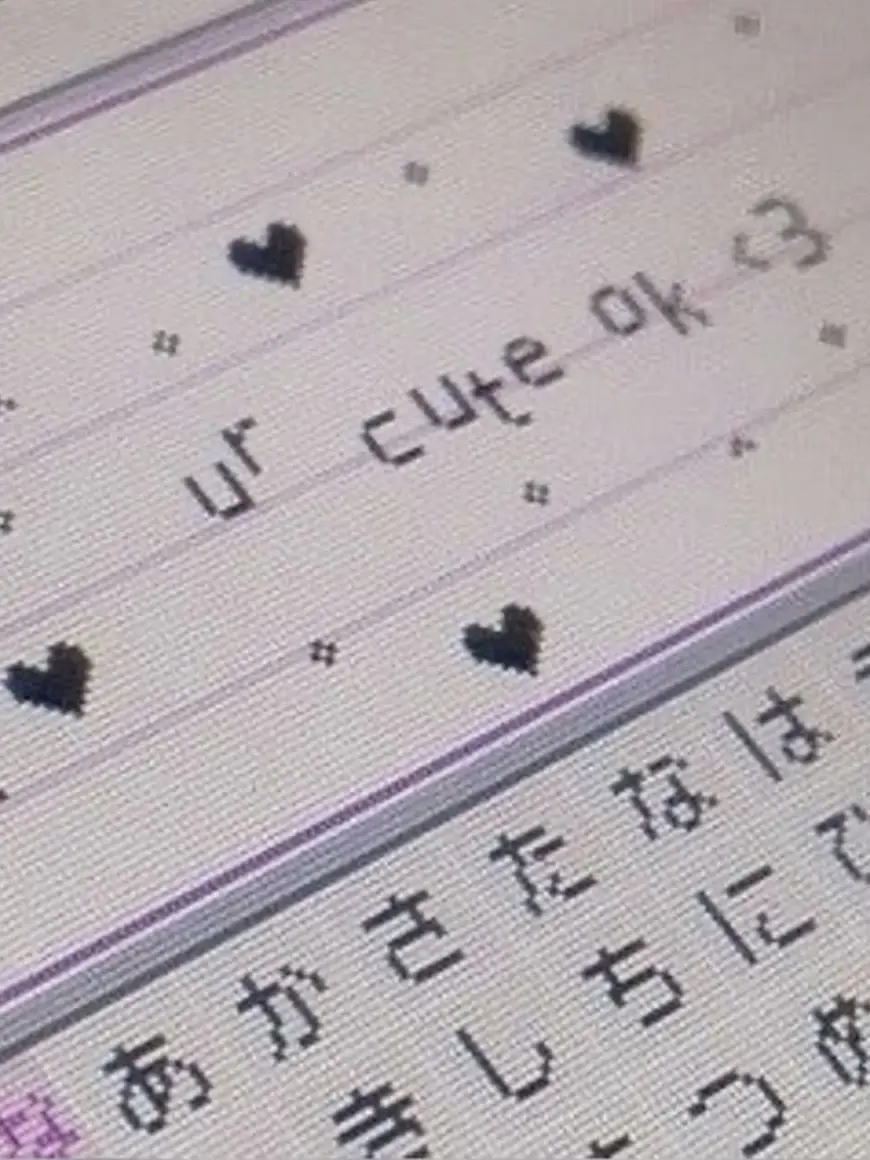 ur cute ok <3
あかさたなは
きしちに
つ